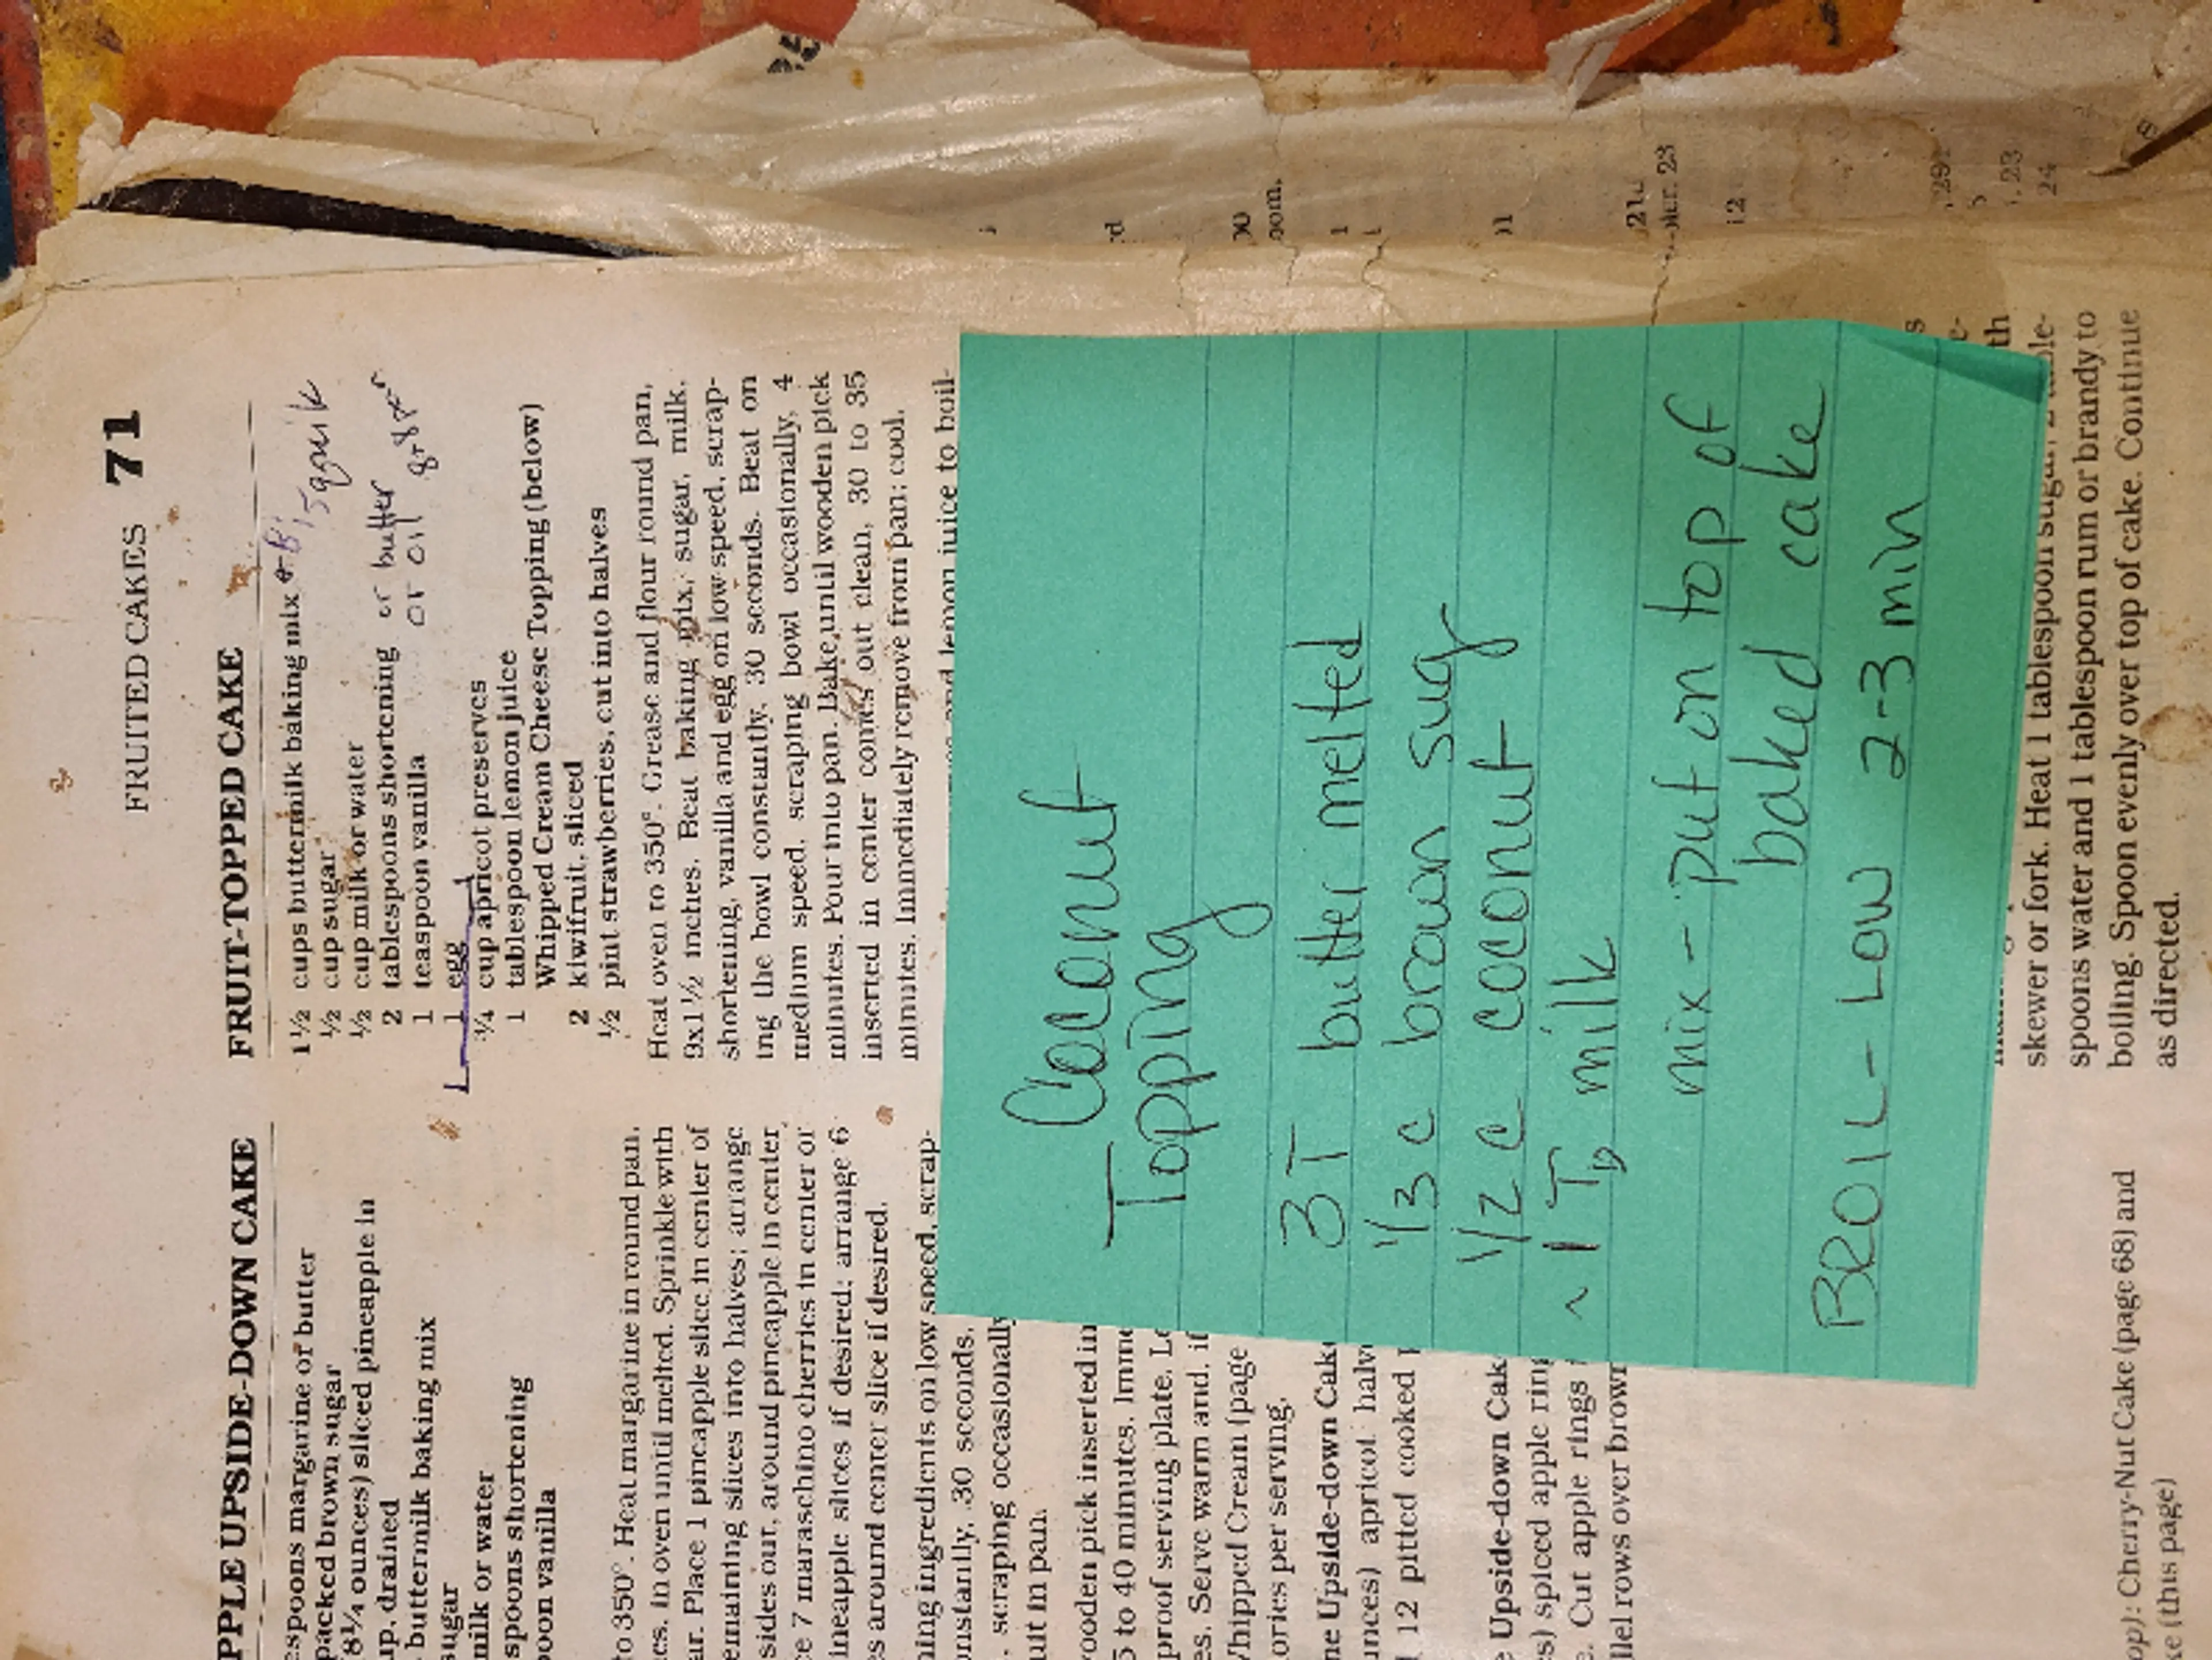 FRUITED CAKES 71
PPLE UPSIDE-DOWN CAKE
espoons margarine or butter
packed brown sugar
8¼ ounces) sliced pineapple in
up, drained
buttermilk baking mix
sugar
milk or water
spoons shortening
poon vanilla
to 350°. Heat margarine in round pan,
es, in oven until melted. Sprinkle with
ar. Place 1 pineapple slice in center of
emaining slices into halves; arrange
sides out, around pineapple in center.
ce 7 maraschino cherries in center or
ineapple slices if desired; arrange 6
es around center slice if desired.
ning ingredients on low speed, scrap-
onstantly, 30 seconds.
, scraping occasionally
ut in pan.
wooden pick inserted in
5 to 40 minutes. Imme
proof serving plate. Le
es. Serve warm and, if
Whipped Cream (page
ories per serving.
ne Upside-down Cake
unces) apricot halv
12 pitted cooked p
Upside-down Cak
es) spiced apple ring
e. Cut apple rings
llel rows over brown
op): Cherry-Nut Cake (page 68) and
ke (this page)
FRUIT-TOPPED CAKE
1½ cups buttermilk baking mix Bisquik
½ cup sugar
½ cup milk or water
2 tablespoons shortening or butter
1 teaspoon vanilla or oil
1 egg
¾ cup apricot preserves
1 tablespoon lemon juice
Whipped Cream Cheese Topping (below)
2 kiwifruit, sliced
½ pint strawberries, cut into halves
Heat oven to 350°. Grease and flour round pan,
9x1½ inches. Beat baking mix, sugar, milk,
shortening, vanilla and egg on low speed, scrap-
ing the bowl constantly, 30 seconds. Beat on
medium speed, scraping bowl occasionally, 4
minutes. Pour into pan. Bake until wooden pick
inserted in center comes out clean, 30 to 35
minutes. Immediately remove from pan; cool.
and lemon juice to boil-
Coconut
Topping
3 T butter melted
1/3 c brown sug
1/2 c coconut
~ 1 Tb milk
mix - put on top of
baked cake
BROIL - Low 2-3 min
skewer or fork. Heat 1 tablespoon sugar, 2 table-
spoons water and 1 tablespoon rum or brandy to
boiling. Spoon evenly over top of cake. Continue
as directed.
oom,
23
23
24